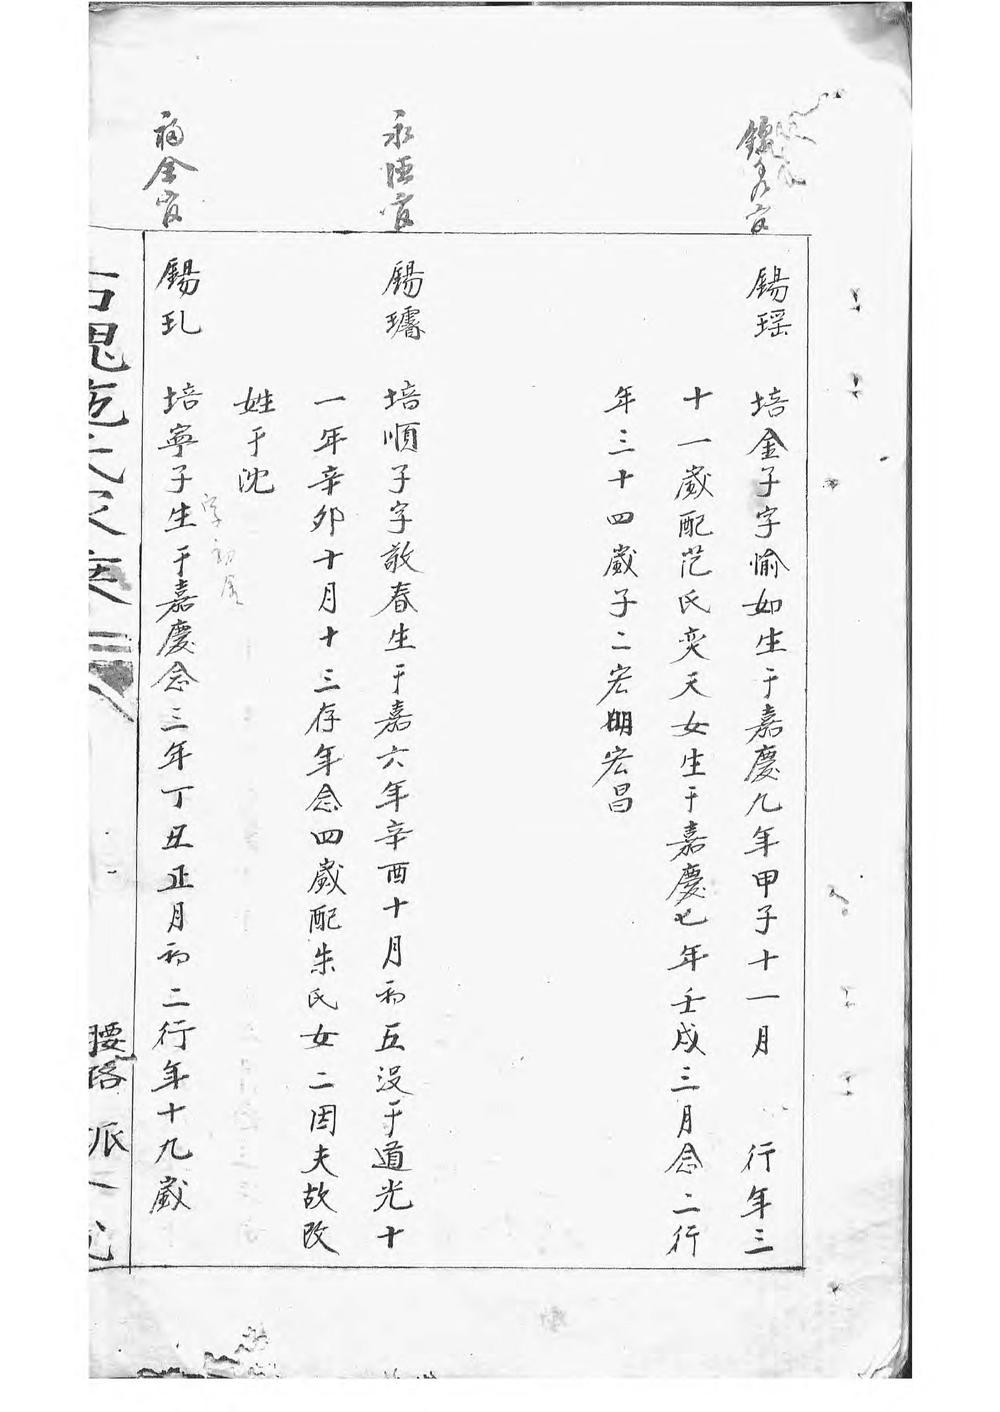 錫瑶
培金子字愉如生于嘉慶九年甲子十一月 行年三
十一歲配范氏奕天女生于嘉慶七年壬戌三月念二行
年三十四歲子二宏明宏昌
永恆官
錫璿
培順子字敬春生于嘉六年辛酉十月初五没于道光十
一年辛卯十月十三存年念四歲配朱氏女二因夫故改
姓于沈
福全官
錫玌
培寧子生于嘉慶念三年丁丑正月初二行年十九歲
字初全
腰路 派